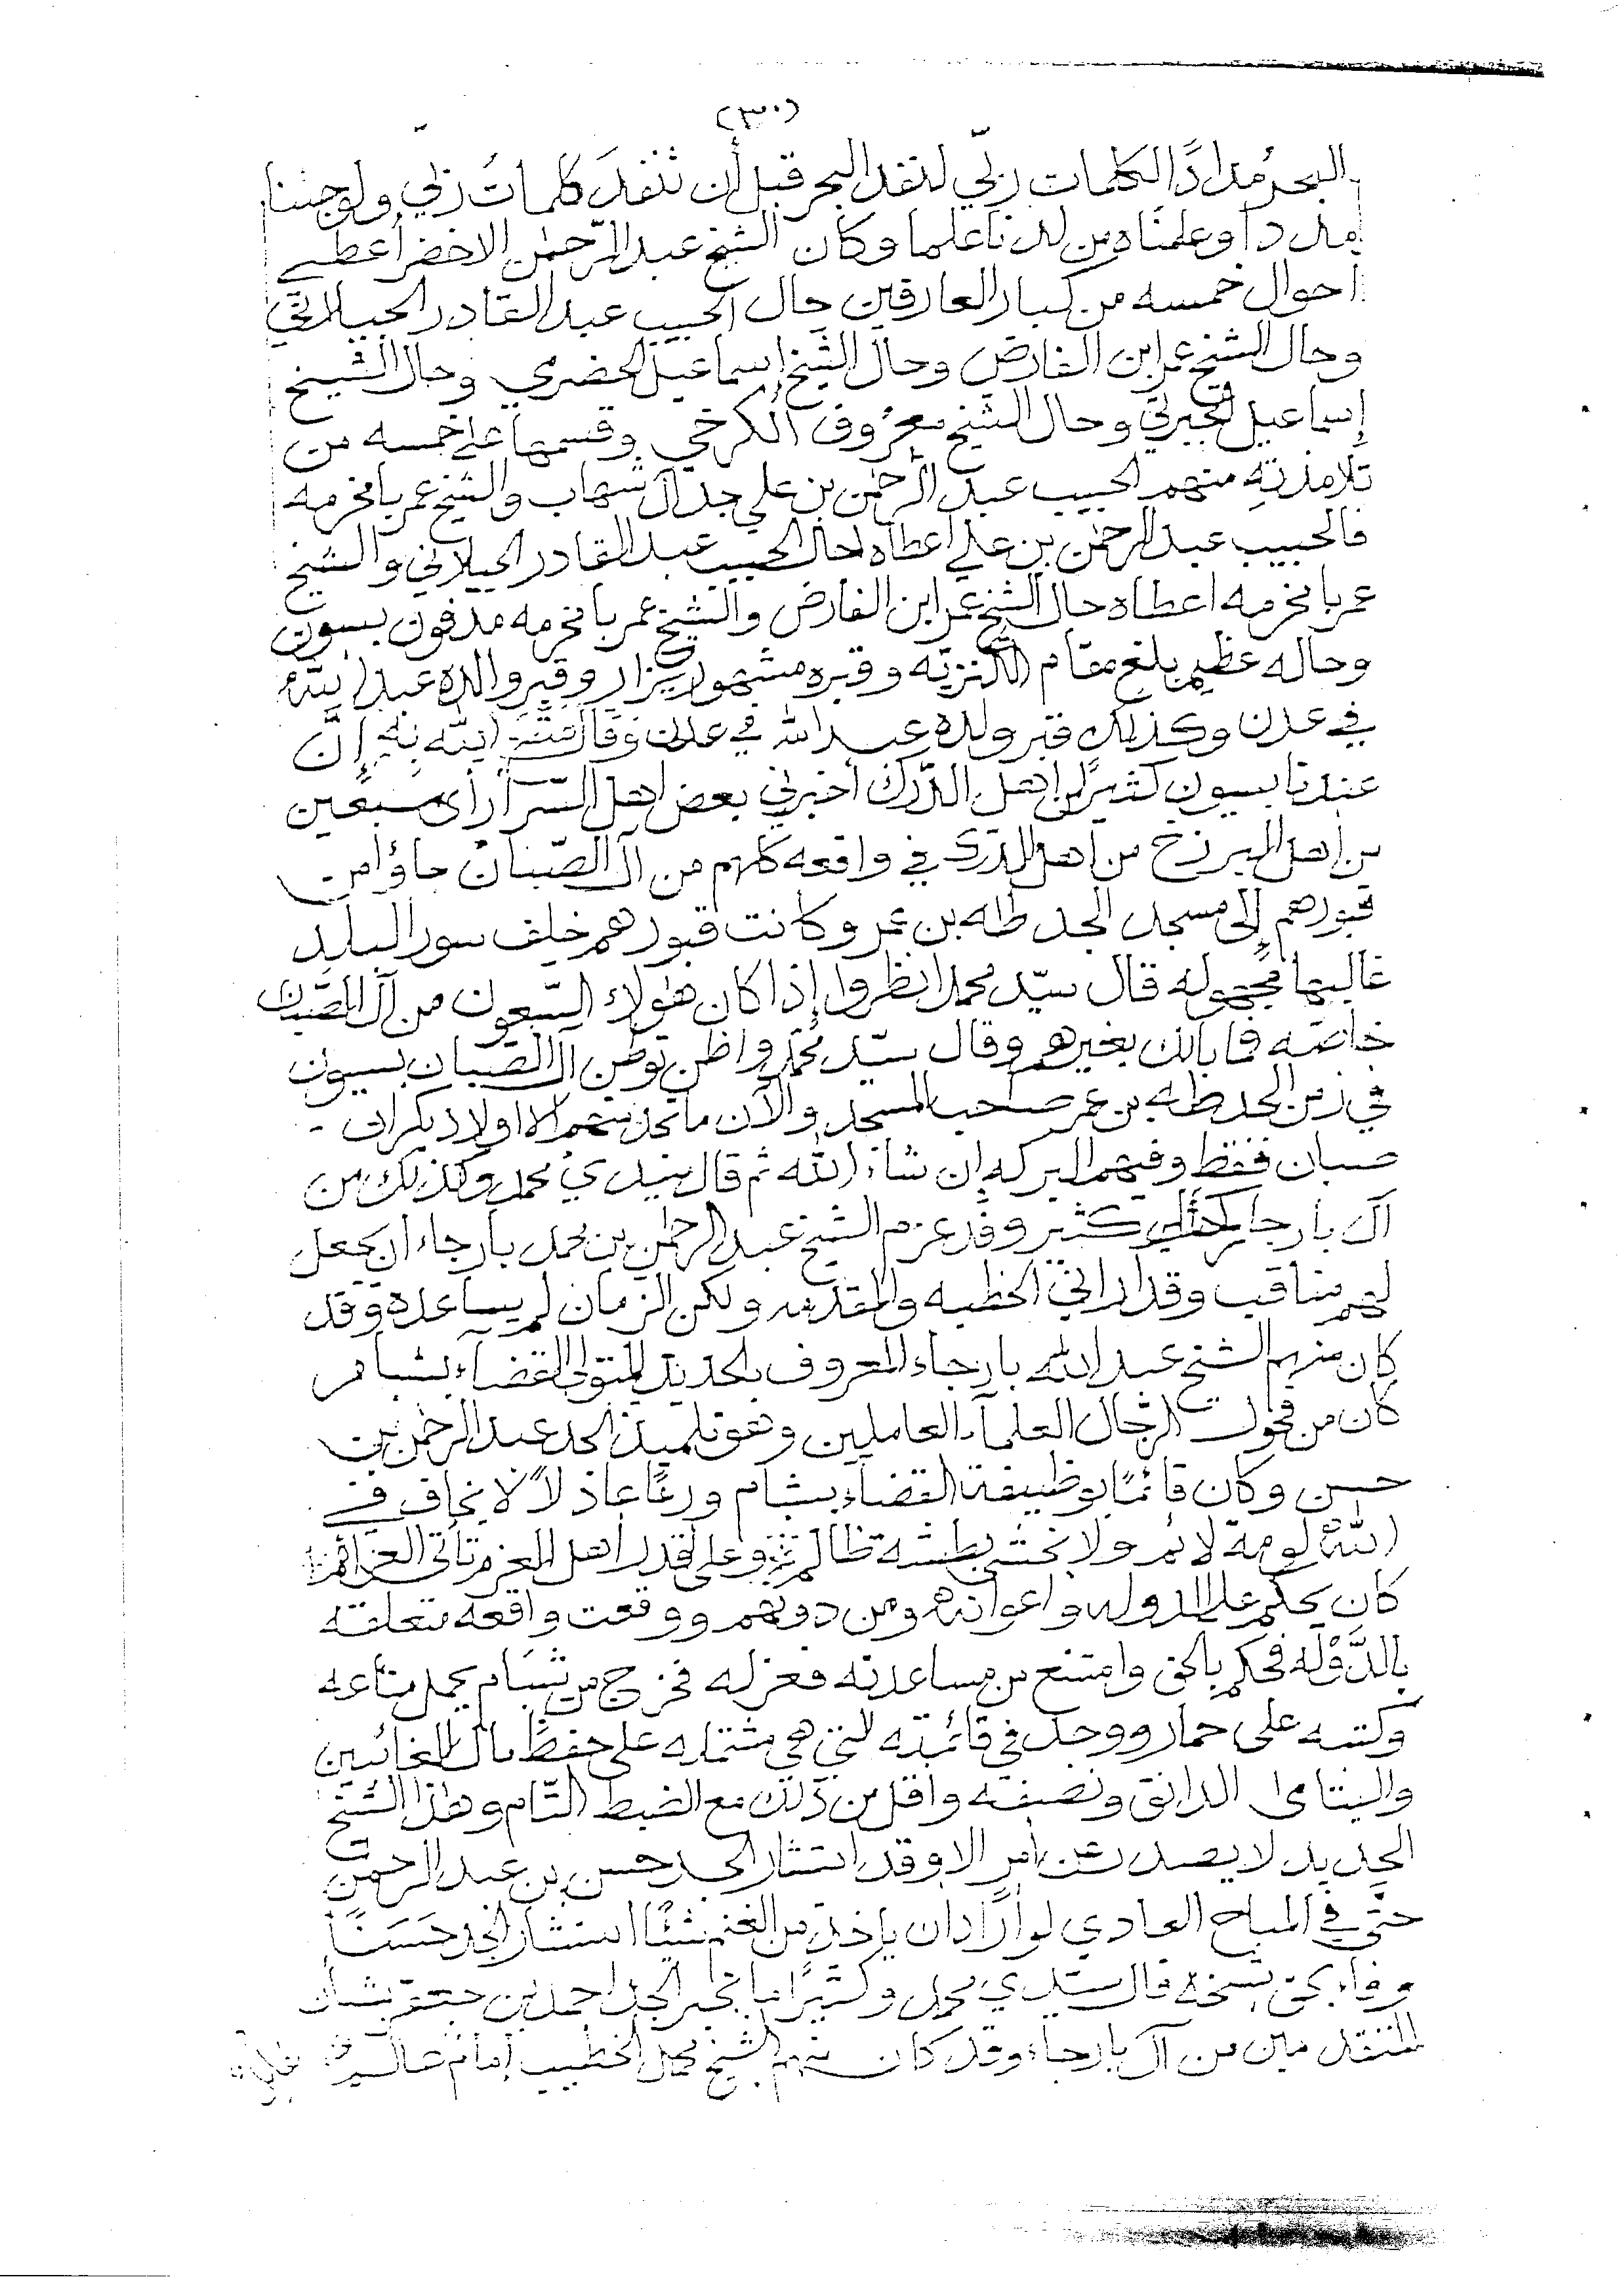 (٣٠)
البحرُ مدادًا لكلمات ربّي لنفد البحر قبل أن تنفدَ كلماتُ ربّي ولو جئنا
مددا وعلمناه من لدنا علما وكان الشيخ عبد الرّحمٰن الاخضر أعطي
احوال خمسه من كبار العارفين حال الحبيب عبد القادر الجيلاني
وحال الشيخ عمر ابن الفارض وحال الشَّيخ إسماعيل الحضرمي وحال الشيخ
إسماعيل الجبرتي وحال الشيخ معرُوف الكرخي وقسمها على خمسه من
تلامذتهِ منهم الحبيب عبد الرحمٰن بن علي جد آل شهاب والشيخ عمر بامخرمه
فالحبيب عبد الرحمٰن بن علي أعطاه حال الحبيب عبد القادر الجيلاني والشيخ
عمر بامخرمه اعطاه حال الشيخ عمر ابن الفارض والشيخ عمر بامخرمه مدفون بسيون
وحاله عظيم بلغ مقام وقبره مشهور يزار وقبر والده عبد اللّه
في عدن وكذلك قبر ولده عبد الله في عدن وقال متّع الله به إنّ
عندنا بسيون كثيرًا من اهل الدّرك أخبرني بعض اهل السّر أنه رأى سبعين
من اهل البرزخ من أهل الدرك في واقعه كلهم من آل الصّبان جاؤا من
قبورهم إلى مسجد الجد طه بن عمر وكانت قبورهم خلف سور البلد
غالبها مجهوله قال سيّد محمد انظروا إذا كان هؤلاء السّبعون من آل الصّبان
خاصّه فما بالك بغيرهم وقال سيّد محمّد واظن توطن آل الصّبان بسيون
في زمن الجد طه بن عمر صاحب المسجد والآن ما نجد منهم الا اولاد بكران
صبان فقط وفيهم البركه إن شاء الله ثم قال سيدي محمد وكذلك من
آل بارجاء كثير وقد عزم الشيخ عبد الرحمٰن بن محمد بارجاء ان يجعل
لهم مناقب وقد اراني الخطبه والمقدمه ولكن الزمان لم يساعده وقد
كان منهم الشيخ عبد الله بارجاء المعروف بالجديد المتولي القضاء بشبام
كان من فحول الرّجال العلماء العاملين وهو تلميذ الجد عبد الرحمٰن بن
حسن وكان قائمًا بوظيفة القضاء بشبام ورعًا عادلًا لا يخاف في
اللّه لومة لائم ولا يخشى بطشة ظالم وعلى قدر أهل العزم تأتي العزائم
كان يحكم على الدوله واعوانهم ومن دونهم ووقعت واقعه متعلقه
بالدَّوْله فحكم بالحق وامتنع من مساعدته فعزله فخرج من شبَام يحمل متاعه
وكتبه على حمار ووجد في قائمته التي هي مشتمله على حفظ مال الغائبين
واليتامى الدانق ونصفه واقل من ذلك مع الضبط التّام وهذا الشيخ
الجديد لا يصدر عن أمر الا وقد استشار الجد حسن بن عبد الرحمن
حتّى في المباح العادي لو أراد ان يأخذ من الغنم شيئًا استشار الجد حَسَنًا
وفاء بحق شيخه قال سيّدي محمد وكثيرًا ما يخبر الجد احمد بن جعفر بشأن
المتقدمين من آل بارجاء وقد كان منهم الشيخ محمد الخطيب إمام عالم